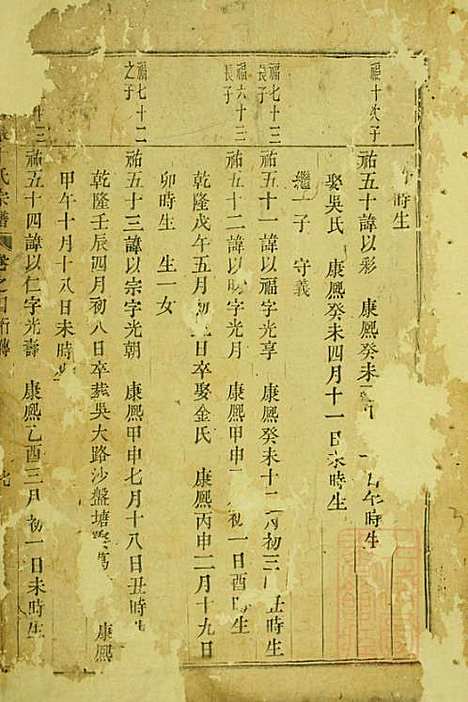 時生
福十次子
祐五十諱以彩 康熙癸未 午時生
娶吳氏 康熙癸未四月十一日未時生
繼子守義
福七十三長子
祐五十一諱以福字光享 康熙癸未十二月初三 丑時生
福六十三長子
祐五十二諱以明字光月 康熙甲申 初一日酉時生
乾隆戊午五月初 日卒娶金氏 康熙丙申二月十九日
卯時生 生一女
福七十二之子
祐五十三諱以宗字光朝 康熙甲申七月十八日丑時生
乾隆壬辰四月初八日卒葬吳大路沙盤塘 康熙
甲午十月十八日未時
十三
祐五十四諱以仁字光壽 康熙乙酉三月初一日未時生
氏宗譜 卷之四 七